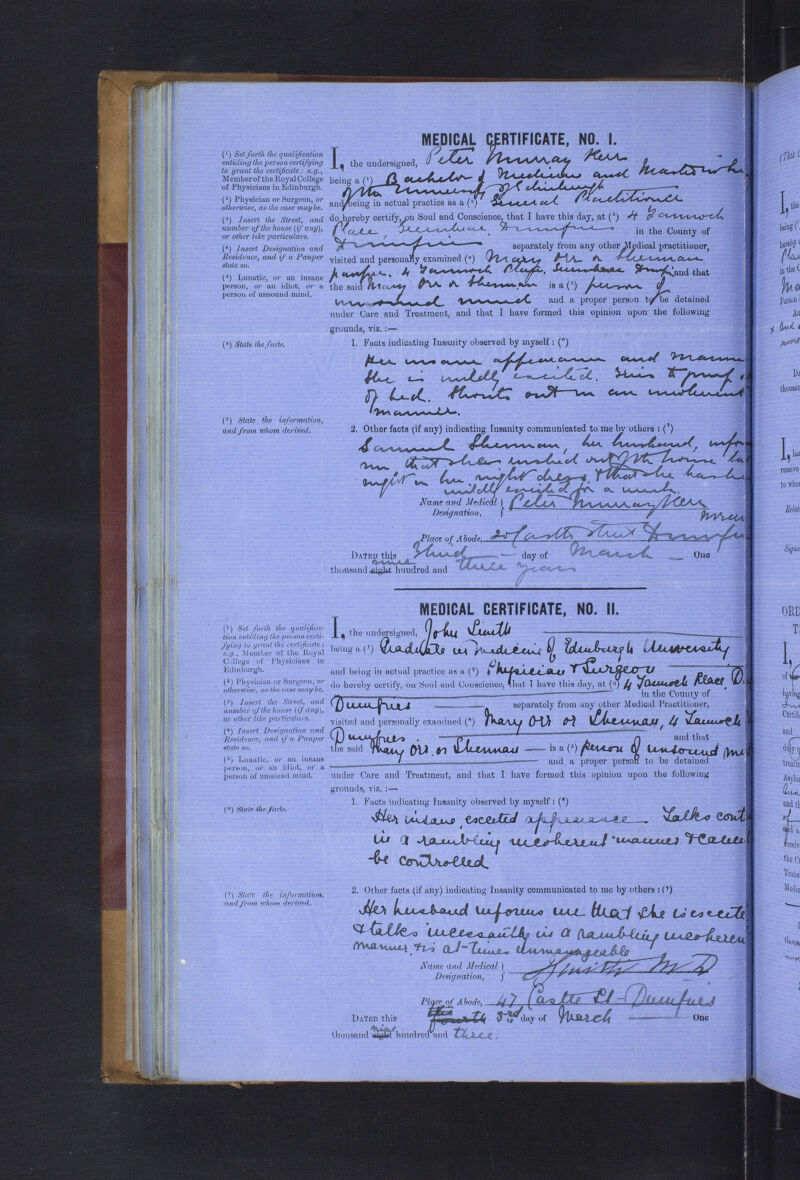 MEDICAL CERTIFICATE, NO. I.
(¹) Set forth the qualification
entitling the person certifying
to grant the certificate: e.g.,
Member of the Royal College
of Physicians in Edinburgh.
(²) Physician or Surgeon, or
otherwise, as the case may be.
(³) Insert the Street, and
number of the house (if any),
or other like particulars.
(⁴) Insert Designation and
Residence, and if a Pauper
state so.
(⁵) Lunatic, or an insane
person, or an idiot, or a
person of unsound mind.
I, the undersigned, Peter Murray Kerr
being a (¹) Bachelor of Medicine and Master in
of the University of Edinburgh
and being in actual practice as a (²) General Practitioner
do hereby certify, on Soul and Conscience, that I have this day, at (³) 4 Tannoch
Place, Dumfries in the County of
Dumfries separately from any other Medical practitioner,
visited and personally examined (⁴) Mary Orr or Shennan
pauper. 4 Tannoch Place, and that
the said Mary Orr or Shennan is a (⁵) person of
unsound mind and a proper person to be detained
under Care and Treatment, and that I have formed this opinion upon the following
grounds, viz. :—
(⁶) State the facts.
1. Facts indicating Insanity observed by myself : (⁶)
Her insane appearance and manne
She is wildly excited. Tries to jump o
of bed. Shouts out in an incoherent
manner.
(⁷) State the information,
and from whom derived.
2. Other facts (if any) indicating Insanity communicated to me by others : (⁷)
Samuel Shennan, her husband, infor
me that she rushed out of the house la
night in her night dress & that she has be
wildly excited for a week.
Name and Medical Designation, Peter Murray Kerr
Place of Abode, 20 Castle Street Dumfri
DATED this Third day of March One
thousand eight nine hundred and three years
MEDICAL CERTIFICATE, NO. II.
(¹) Set forth the qualifica-
tion entitling the person certi-
fying to grant the certificate :
e.g., Member of the Royal
College of Physicians in
Edinburgh.
(²) Physician or Surgeon, or
otherwise, as the case may be.
(³) Insert the Street, and
number of the house (if any),
or other like particulars.
(⁴) Insert Designation and
Residence, and if a Pauper
state so.
(⁵) Lunatic, or an insane
person, or an idiot, or a
person of unsound mind.
I, the undersigned, John Smith
being a (¹) Graduate in medicine of Edinburgh University
and being in actual practice as a (²) Physician & Surgeon
do hereby certify, on Soul and Conscience, that I have this day, at (³) 4 Tannoch Place, D
in the County of
Dumfries separately from any other Medical Practitioner,
visited and personally examined (⁴) Mary Orr or Shennan, 4 Tannoch
Dumfries and that
the said Mary Orr or Shennan is a (⁵) person of unsound mi
and a proper person to be detained
under Care and Treatment, and that I have formed this opinion upon the following
grounds, viz. :—
(⁶) State the facts.
1. Facts indicating Insanity observed by myself : (⁶)
Her insane, excited appearance. Talks cont
in a rambling incoherent manner & cann
be controlled
(⁷) State the information,
and from whom derived.
2. Other facts (if any) indicating Insanity communicated to me by others : (⁷)
Her husband informs me that she is excite
& talks incessantly in a rambling incoheren
manner & is at times unmanageable
Name and Medical Designation, J Smith M D
Place of Abode, 47 Castle St Dumfries
DATED this fourth 3rd day of March One
thousand eight nine hundred and three.